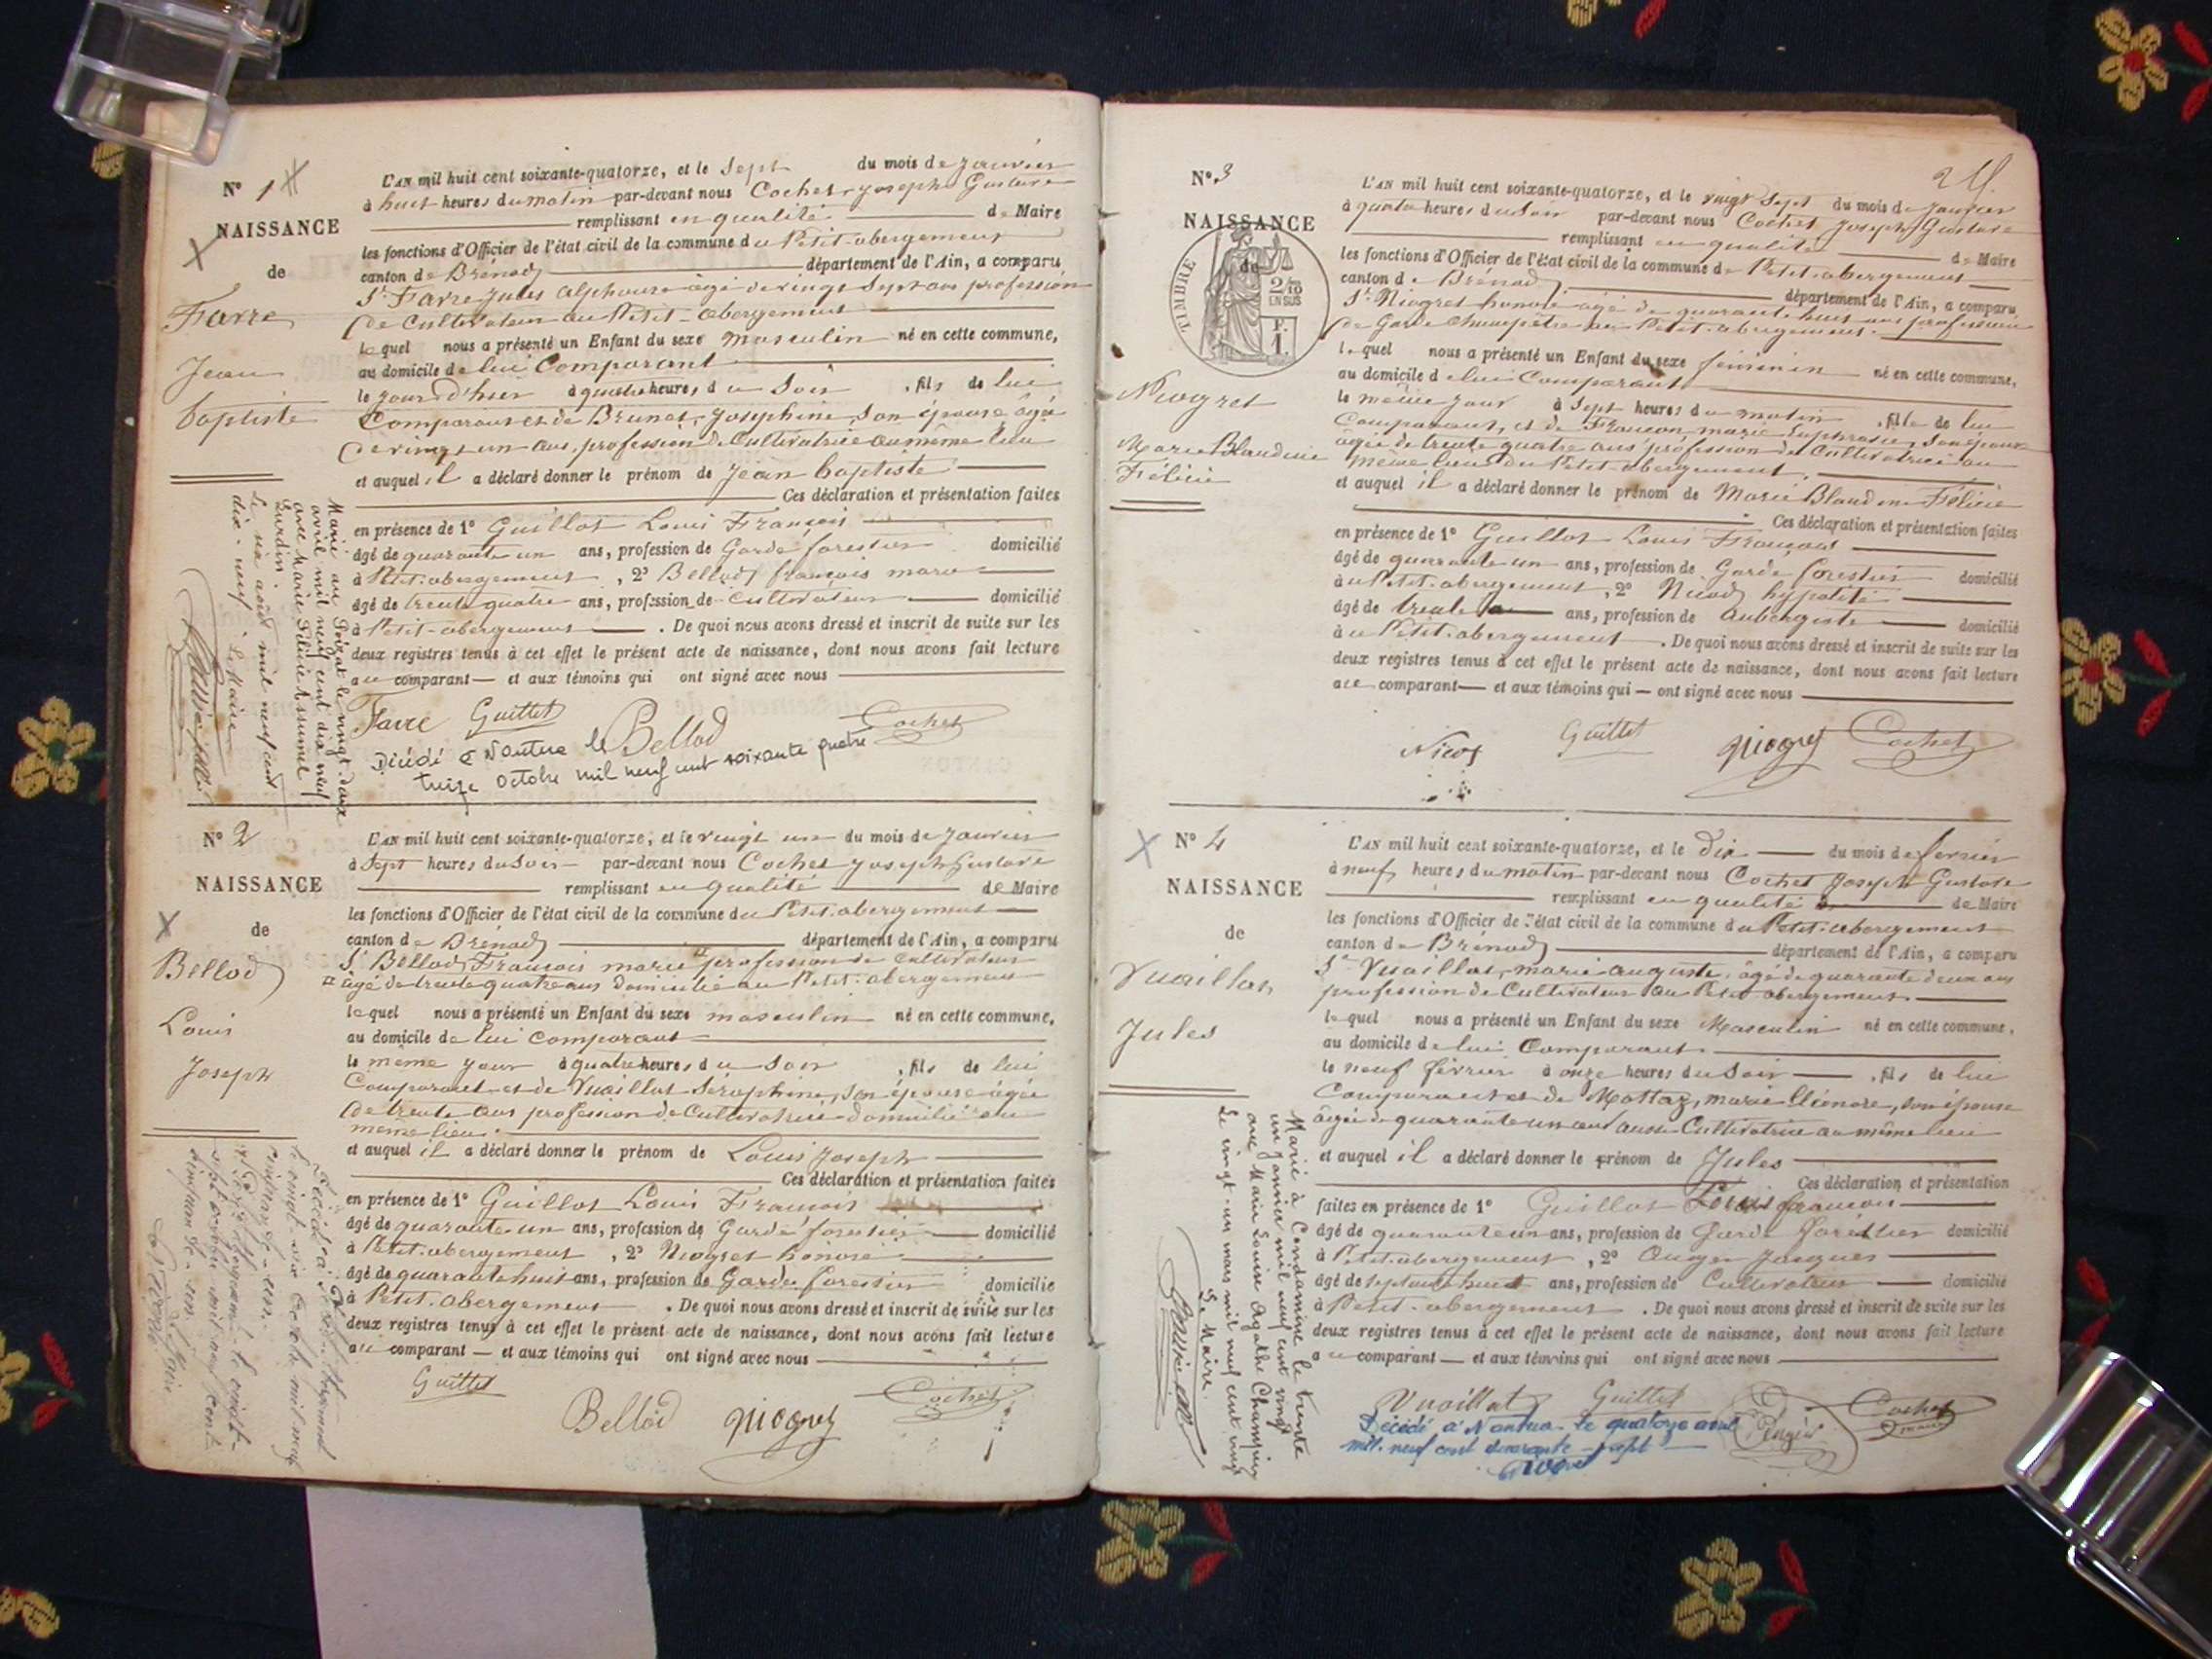 N° 1
NAISSANCE
de
Favre
Jean
baptiste
L'AN mil huit cent soixante-quatorze, et le Sept du mois de Janvier
à huit heures du matin par-devant nous Cochet Joseph Gustave
remplissant en qualité de Maire
les fonctions d'Officier de l'état civil de la commune du Petit-abergement
canton de Brénod département de l'Ain, a comparu
Sr Favre Jules alphonse âgé de vingt Sept ans profession
de Cultivateur au Petit-abergement
lequel nous a présenté un Enfant du sexe masculin né en cette commune,
au domicile de lui Comparant
le jour d'hier à quatre heures du Soir, fils de lui
Comparant et de Brunet, Josephine, Son épouse âgée
de vingt un ans, profession de Cultivatrice au même lieu
et auquel il a déclaré donner le prénom de Jean baptiste
Ces déclaration et présentation faites
en présence de 1° Guillot Louis François
âgé de quarante un ans, profession de Garde forestier domicilié
à Petit-abergement, 2° Bellod françois marie
âgé de trente quatre ans, profession de Cultivateur domicilié
à Petit-abergement. De quoi nous avons dressé et inscrit de suite sur les
deux registres tenus à cet effet le présent acte de naissance, dont nous avons fait lecture
au comparant et aux témoins qui ont signé avec nous
Favre Guillot Bellod Cochet
Décédé à Nantua le
treize octobre mil neuf cent soixante quatre
Marié au Poizat le vingt-deux
avril mil neuf cent dix neuf
avec Marie Félicie
Le six août mil neuf cent
dix-neuf. Le Maire
N° 2
NAISSANCE
de
Bellod
Louis
Joseph
L'AN mil huit cent soixante-quatorze, et le vingt un du mois de Janvier
à Sept heures du Soir par-devant nous Cochet Joseph Gustave
remplissant en qualité de Maire
les fonctions d'Officier de l'état civil de la commune du Petit-abergement
canton de Brénod département de l'Ain, a comparu
Sr Bellod François marie profession de Cultivateur
âgé de trente quatre ans domicilié au Petit-abergement
lequel nous a présenté un Enfant du sexe masculin né en cette commune,
au domicile de lui Comparant
le même jour à quatre heures du Soir, fils de lui
Comparant et de Vuaillat Séraphine, Son épouse âgée
de trente ans profession de Cultivatrice domicilié au
même lieu
et auquel il a déclaré donner le prénom de Louis Joseph
Ces déclaration et présentation faites
en présence de 1° Guillot Louis François
âgé de quarante un ans, profession de Garde forestier domicilié
à Petit-abergement, 2° Niogret honoré
âgé de quarante huit ans, profession de Garde forestier domicilié
à Petit-abergement. De quoi nous avons dressé et inscrit de suite sur les
deux registres tenus à cet effet le présent acte de naissance, dont nous avons fait lecture
au comparant et aux témoins qui ont signé avec nous
Guillot Bellod Niogret Cochet
N° 3
NAISSANCE
de
TIMBRE
2/10
EN SUS
F.
1.
Niogret
Marie Blandine
Félicie
L'AN mil huit cent soixante-quatorze, et le vingt Sept du mois de Janvier
à quatre heures du Soir par-devant nous Cochet Joseph Gustave
remplissant en qualité de Maire
les fonctions d'Officier de l'état civil de la commune de Petit-abergement
canton de Brénod département de l'Ain, a comparu
Sr Niogret honoré âgé de quarante huit ans profession
de Garde Champêtre au Petit-abergement
lequel nous a présenté un Enfant du sexe féminin né en cette commune,
au domicile de lui Comparant
le même jour à Sept heures du matin, fille de lui
Comparant, et de Francon, marie Euphrasie, Son épouse
âgée de trente quatre ans profession de Cultivatrice au
même lieu du Petit-abergement
et auquel il a déclaré donner le prénom de Marie Blandine Félicie
Ces déclaration et présentation faites
en présence de 1° Guillot Louis François
âgé de quarante un ans, profession de Garde forestier domicilié
au Petit-abergement, 2° Nicod hypolite
âgé de trente ans, profession de Aubergiste domicilié
au Petit-abergement. De quoi nous avons dressé et inscrit de suite sur les
deux registres tenus à cet effet le présent acte de naissance, dont nous avons fait lecture
au comparant et aux témoins qui ont signé avec nous
Nicod Guillot Niogret Cochet
N° 4
NAISSANCE
de
Vuaillat
Jules
L'AN mil huit cent soixante-quatorze, et le dix du mois de fevrier
à neuf heures du matin par-devant nous Cochet Joseph Gustave
remplissant en qualité de Maire
les fonctions d'Officier de l'état civil de la commune du Petit-abergement
canton de Brénod département de l'Ain, a comparu
Sr Vuaillat, marie auguste, âgé de quarante deux ans
profession de Cultivateur au Petit abergement
lequel nous a présenté un Enfant du sexe Masculin né en cette commune,
au domicile de lui Comparant
le neuf février à onze heures du Soir, fils de lui
Comparant et de Mottaz, marie Elénore, son épouse
âgée de quarante un ans aussi Cultivatrice au même lieu
et auquel il a déclaré donner le prénom de Jules
Ces déclaration et présentation
faites en présence de 1° Guillot Louis françois
âgé de quarante un ans, profession de Garde Forestier domicilié
à Petit-abergement, 2° Jacques
âgé de Septante huit ans, profession de Cultivateur domicilié
à Petit-abergement. De quoi nous avons dressé et inscrit de suite sur les
deux registres tenus à cet effet le présent acte de naissance, dont nous avons fait lecture
au comparant et aux témoins qui ont signé avec nous
Vuaillat Guillot Cochet
maire
Décédé à Nantua le quatorze avril
mil neuf cent quarante-sept
Marié à Condamine le trente
un janvier mil neuf cent vingt
avec Marie Louise Agathe Champion
Le vingt-un mars mil neuf cent vingt
Le Maire.